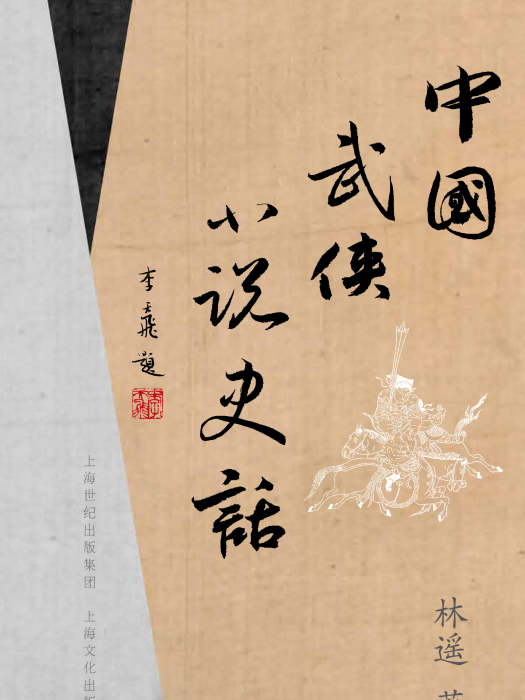 中國
武侠
小说史話
李飛題
上海世纪出版集团 上海文化出版
林遥